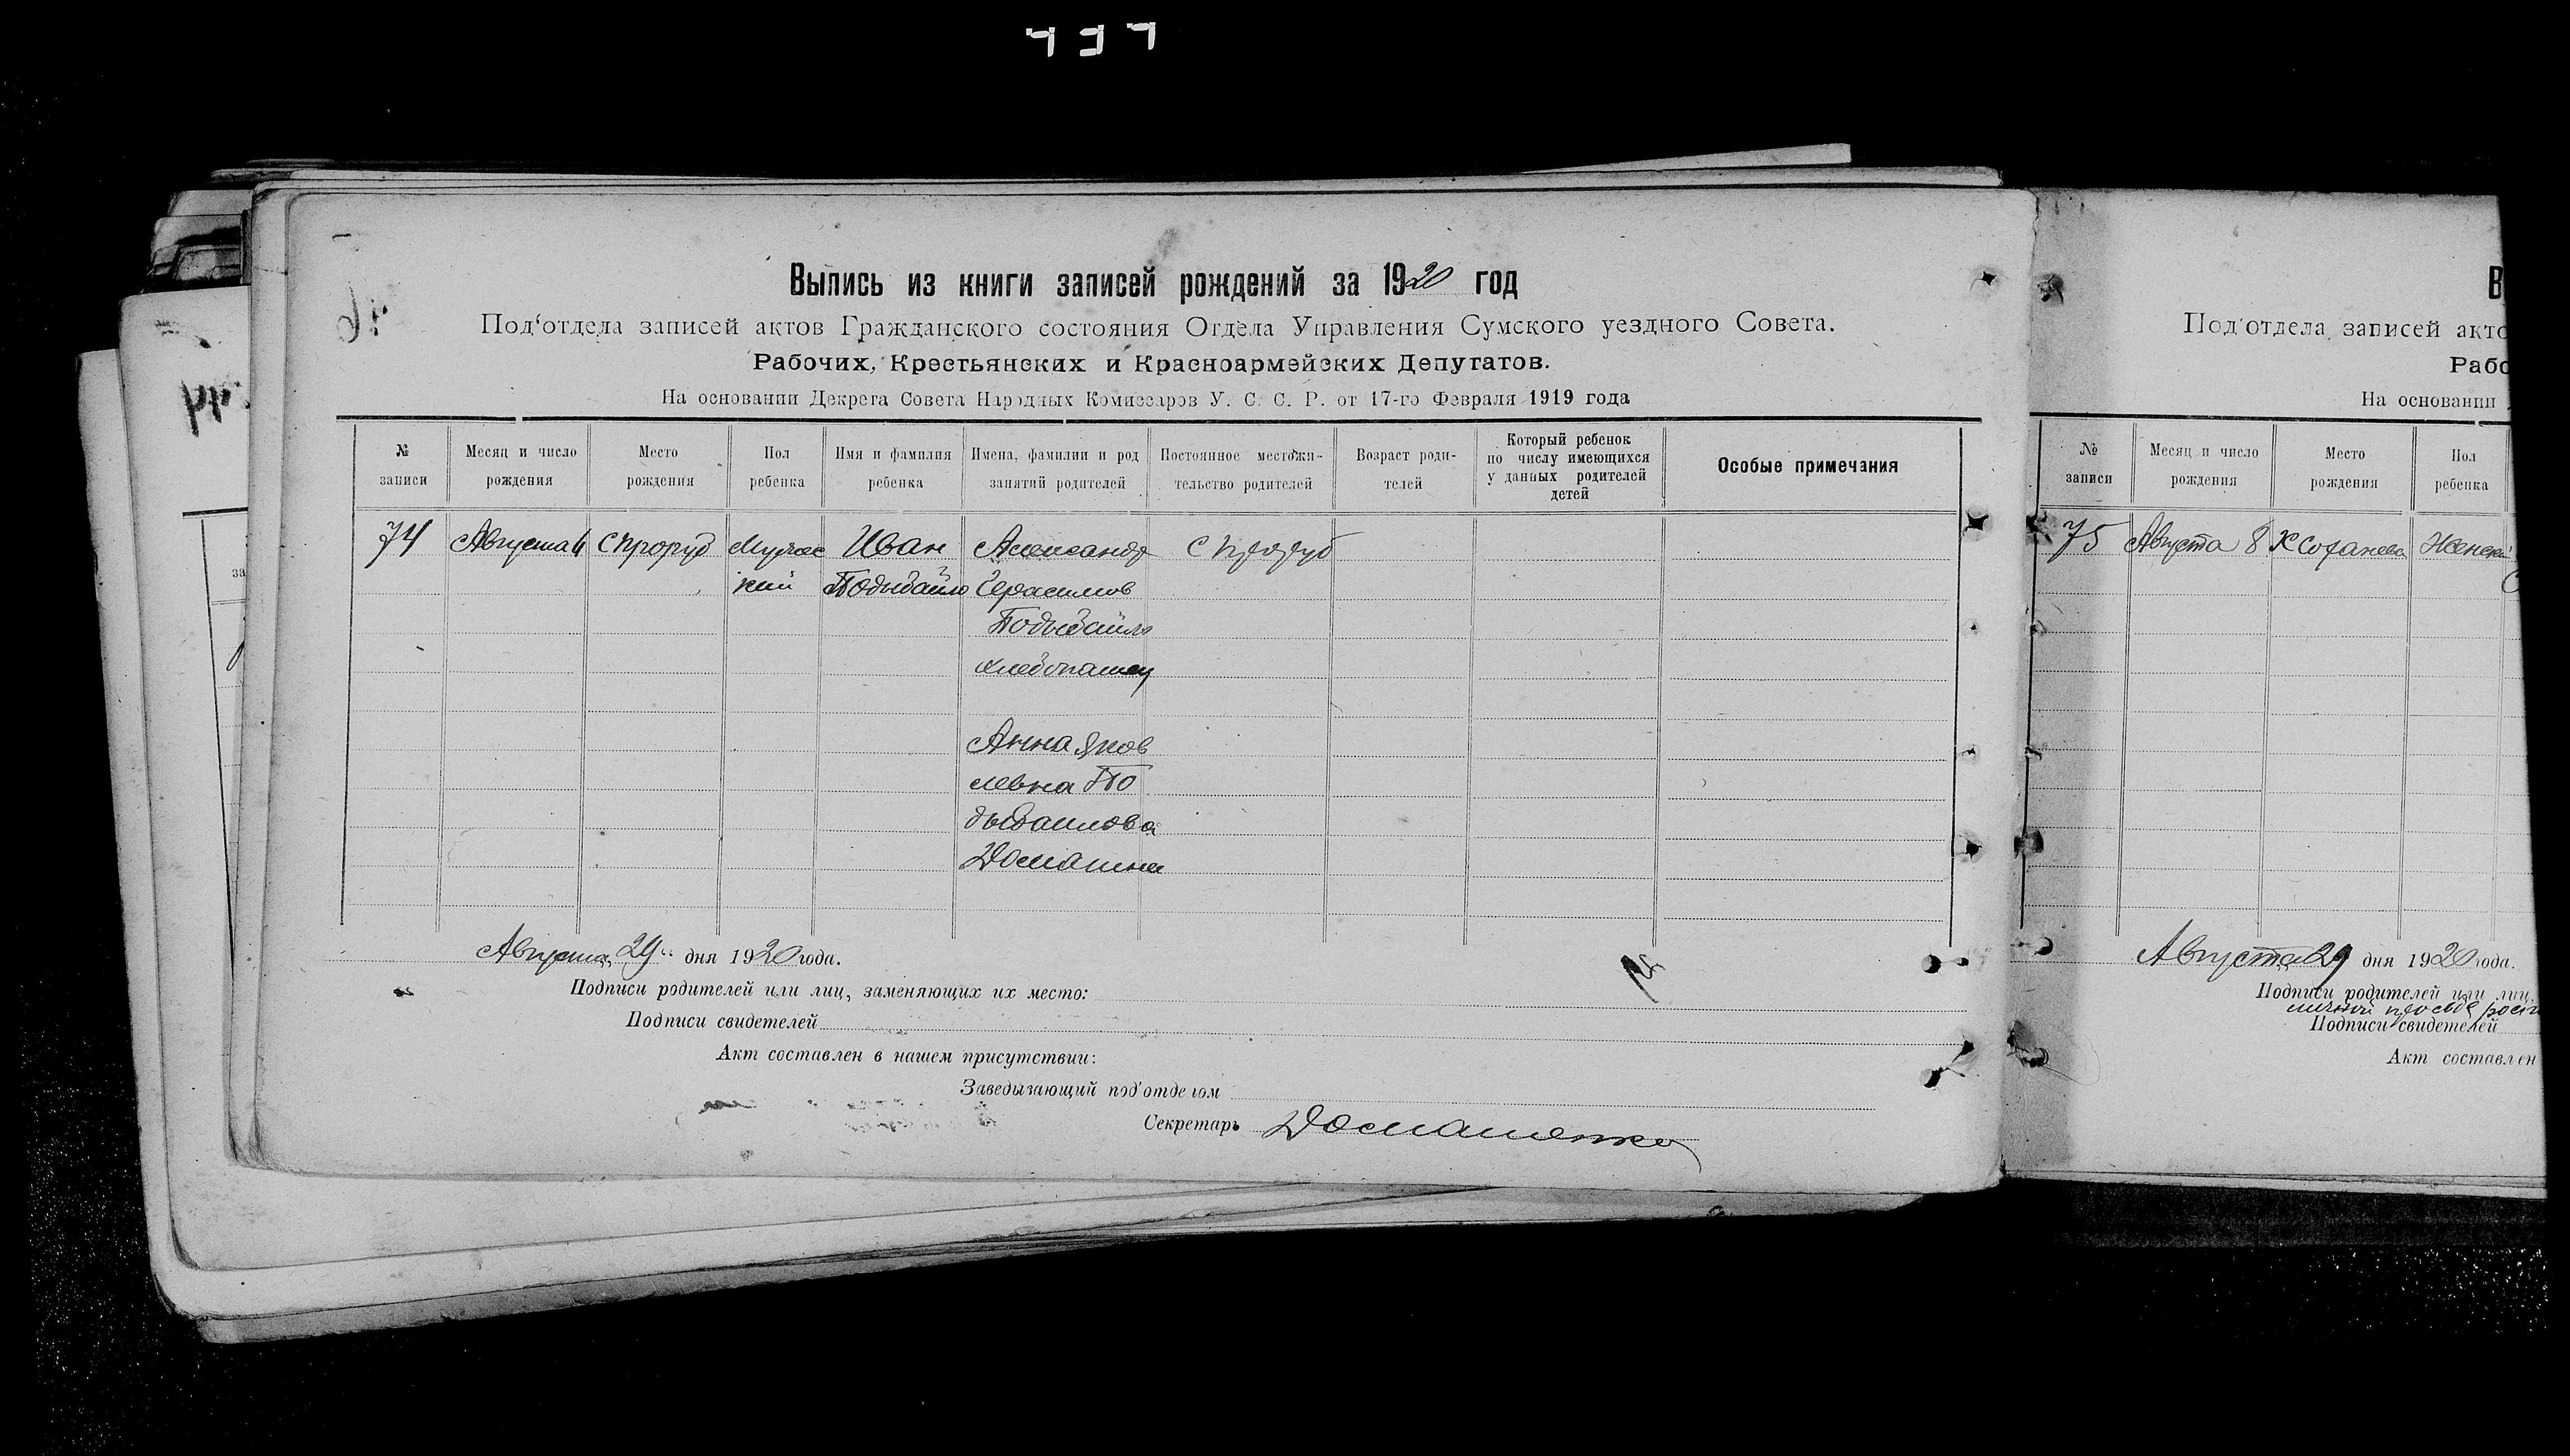 Выпись из книги записей рождений за 1920 год
Под'отдела записей актов Гражданского состояния Отдела Управления Сумского уездного Совета.
Рабочих, Крестьянских и Красноармейских Депутатов.
На основании Декрета Совета Народных Комиссаров У. С. С. Р. от 17-го Февраля 1919 года
№ записи
Месяц и число рождения
Место рождения
Пол ребенка
Имя и фамилия ребенка
Имена, фамилии и род занятий родителей
Постоянное местожительство родителей
Возраст родителей
Который ребенок по числу имеющихся у данных родителей детей
Особые примечания
74 Августа С Проруб Мужс Иван Александр С Проруб
кий Подывайло Герасимов
Подывайло
хлебопашец
Анна Яков
левна По
дывайлова
Августа 29 дня 1920 года.
Подписи родителей или лиц, заменяющих их место:
Подписи свидетелей
Акт составлен в нашем присутствии:
Заведывающий под'отделом
Секретарь Домашенко
В
Под'отдела записей акто
Рабо
На основании
№ записи
Месяц и число рождения
Место рождения
Пол ребенка
75 Августа 8 Женский
Августа 29 дня 1920 года.
Подписи родителей или лиц,
Подписи свидетелей
Акт составлен